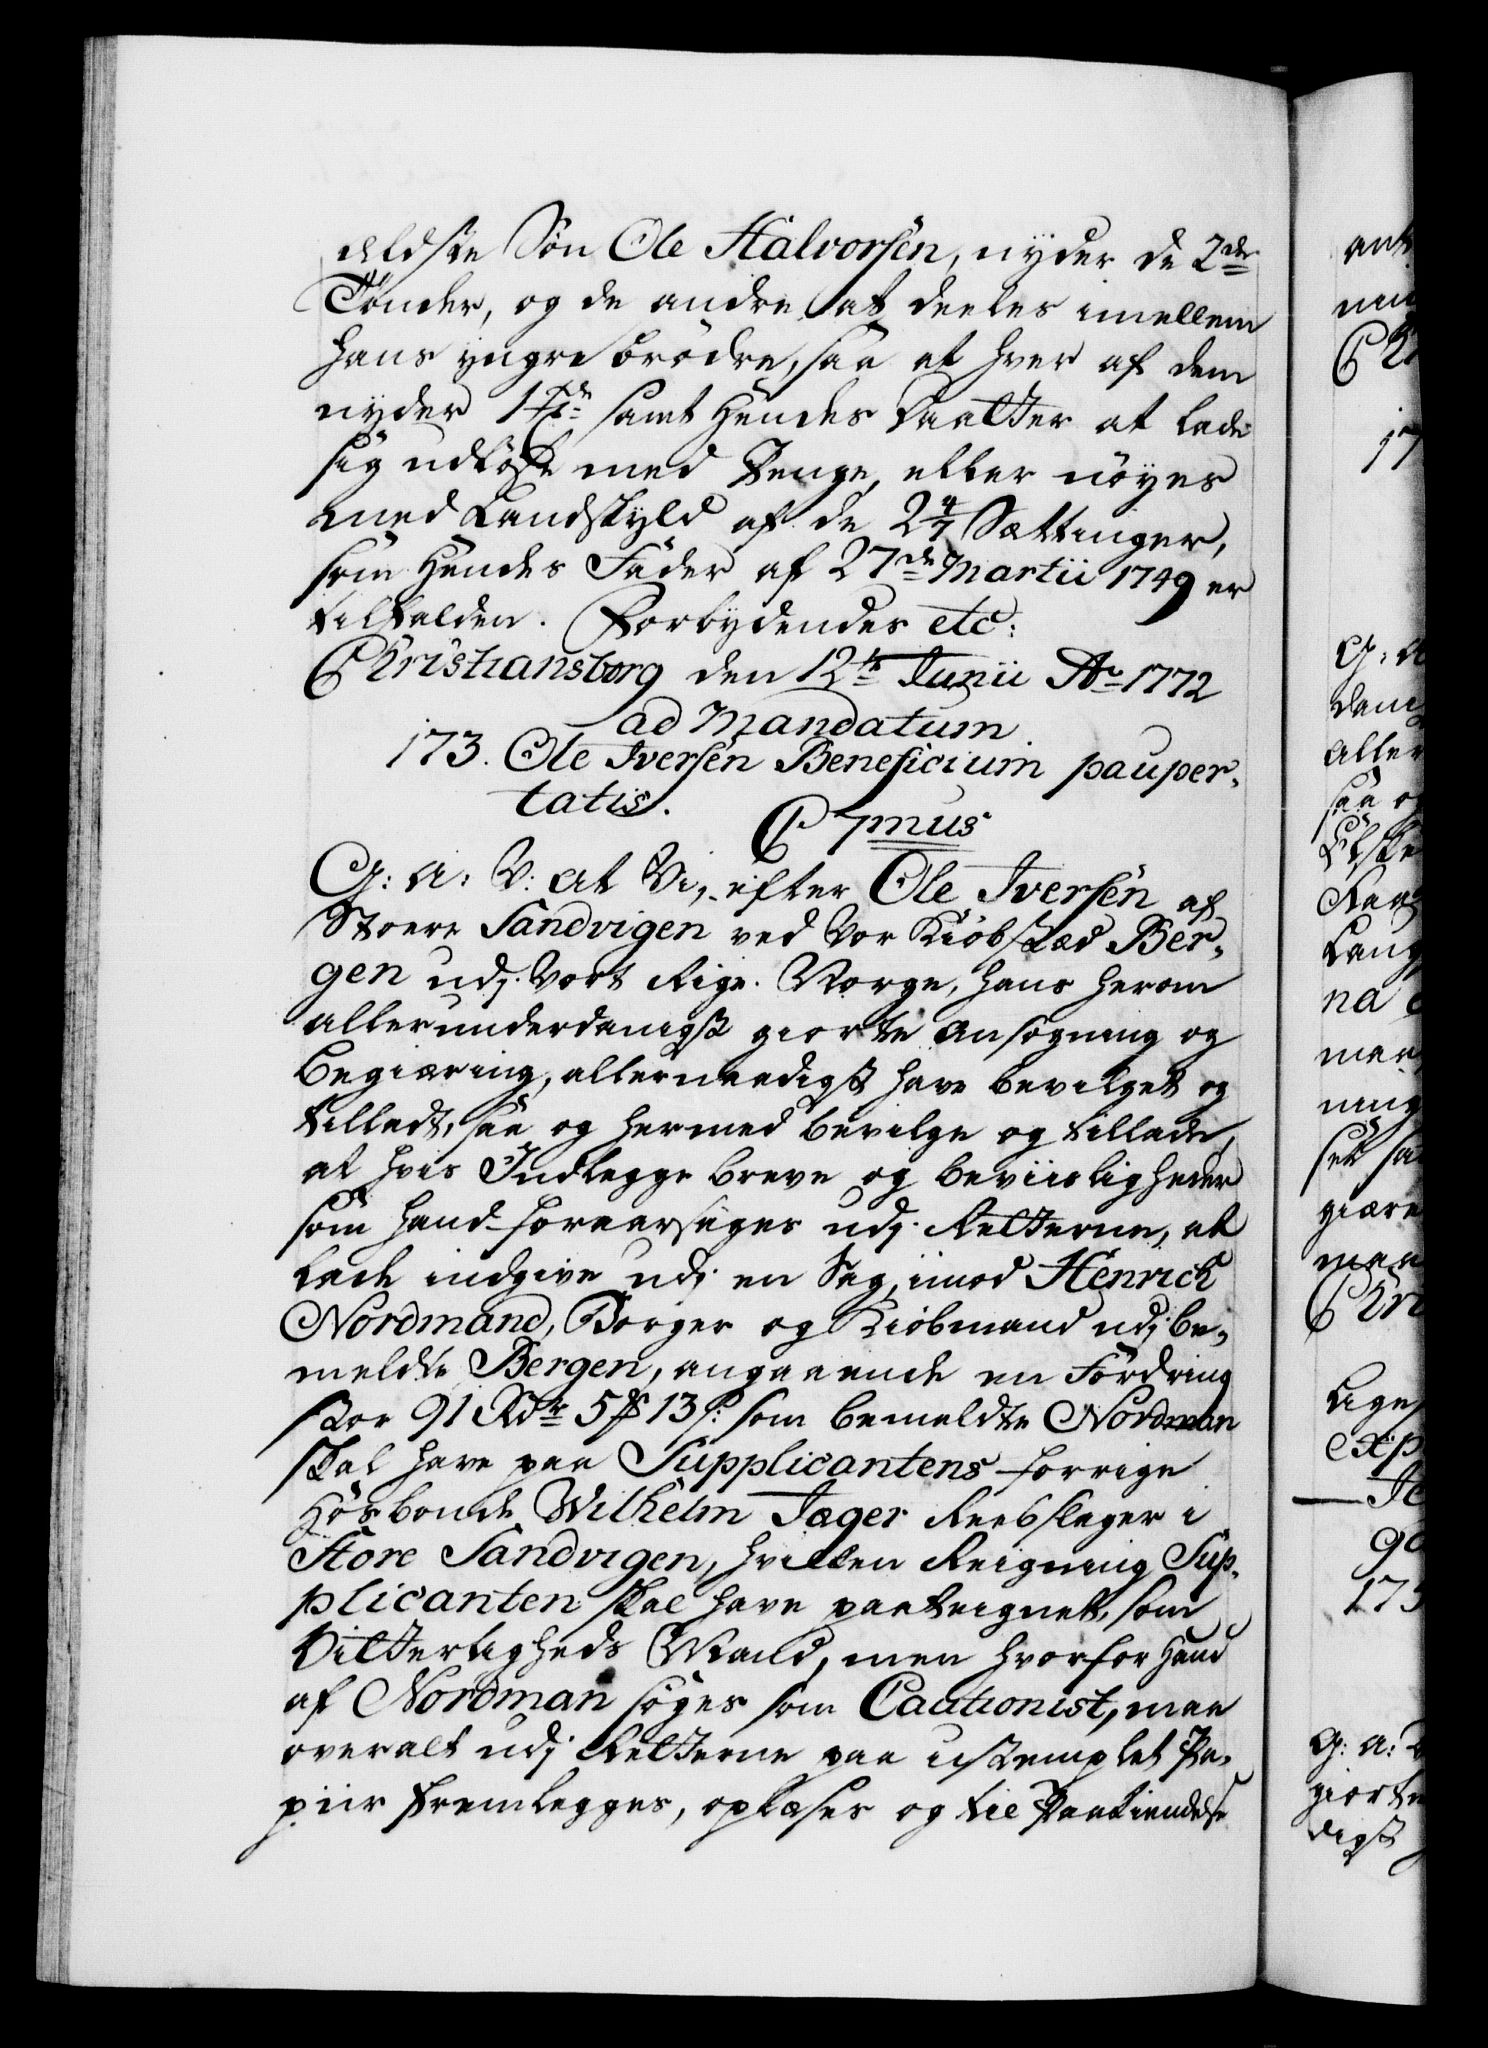 ældste Søn Ole Halvorsen, nyder de 2de
Tønder, og de andre at deeles imellem
hans yngre brødre, saa at hver af dem
nyder 1 Tde samt hendes Daatter at lade
sig udløse med Penge, eller nøyes
med Landskyld af de 2 4/7 Sættinger,
som hendes Fader af 27de Martii 1749 er
tilfalden. Forbydendes etc:
Christiansborg den 12te Junii Ao 1772
ad Mandatum
173. Ole Iversen Beneficium pauper-
tatis.
C 7mus
G: A: V: at Vi, efter Ole Iversen af
Stoere Sandvigen ved Vor Kiøbstæd Ber-
gen udj Vort Rige Norge, hans herom
allerunderdanigst giorte Ansøgning og
Begiæring, allernaadigst have bevilget og
tilladt, saa og hermed bevilge og tillade,
at hvis Indlegge breve og beviisligheder
som hand foraarsages udj Retterne, at
lade indgive udj en Sag, imod Henrich
Nordmand, Borger og Kiøbmand udj be-
meldte Bergen, angaaende en Fordring
stor 91 Rdr 5 ß 13 s: som bemeldte Nordman
skal have paa Supplicantens forrige
Hosbonde Wilhelm Jæger Reebslager i
Store Sandvigen, hvilken Reigning Sup-
plicanten skal have paategnet, som
Vitterligheds Mand, men hvorfor hand
af Nordman søges som Cautionist, maa
overalt udj Retterne paa ustemplet Pa-
piir fremlegges, oplæses og til Paakiendelse